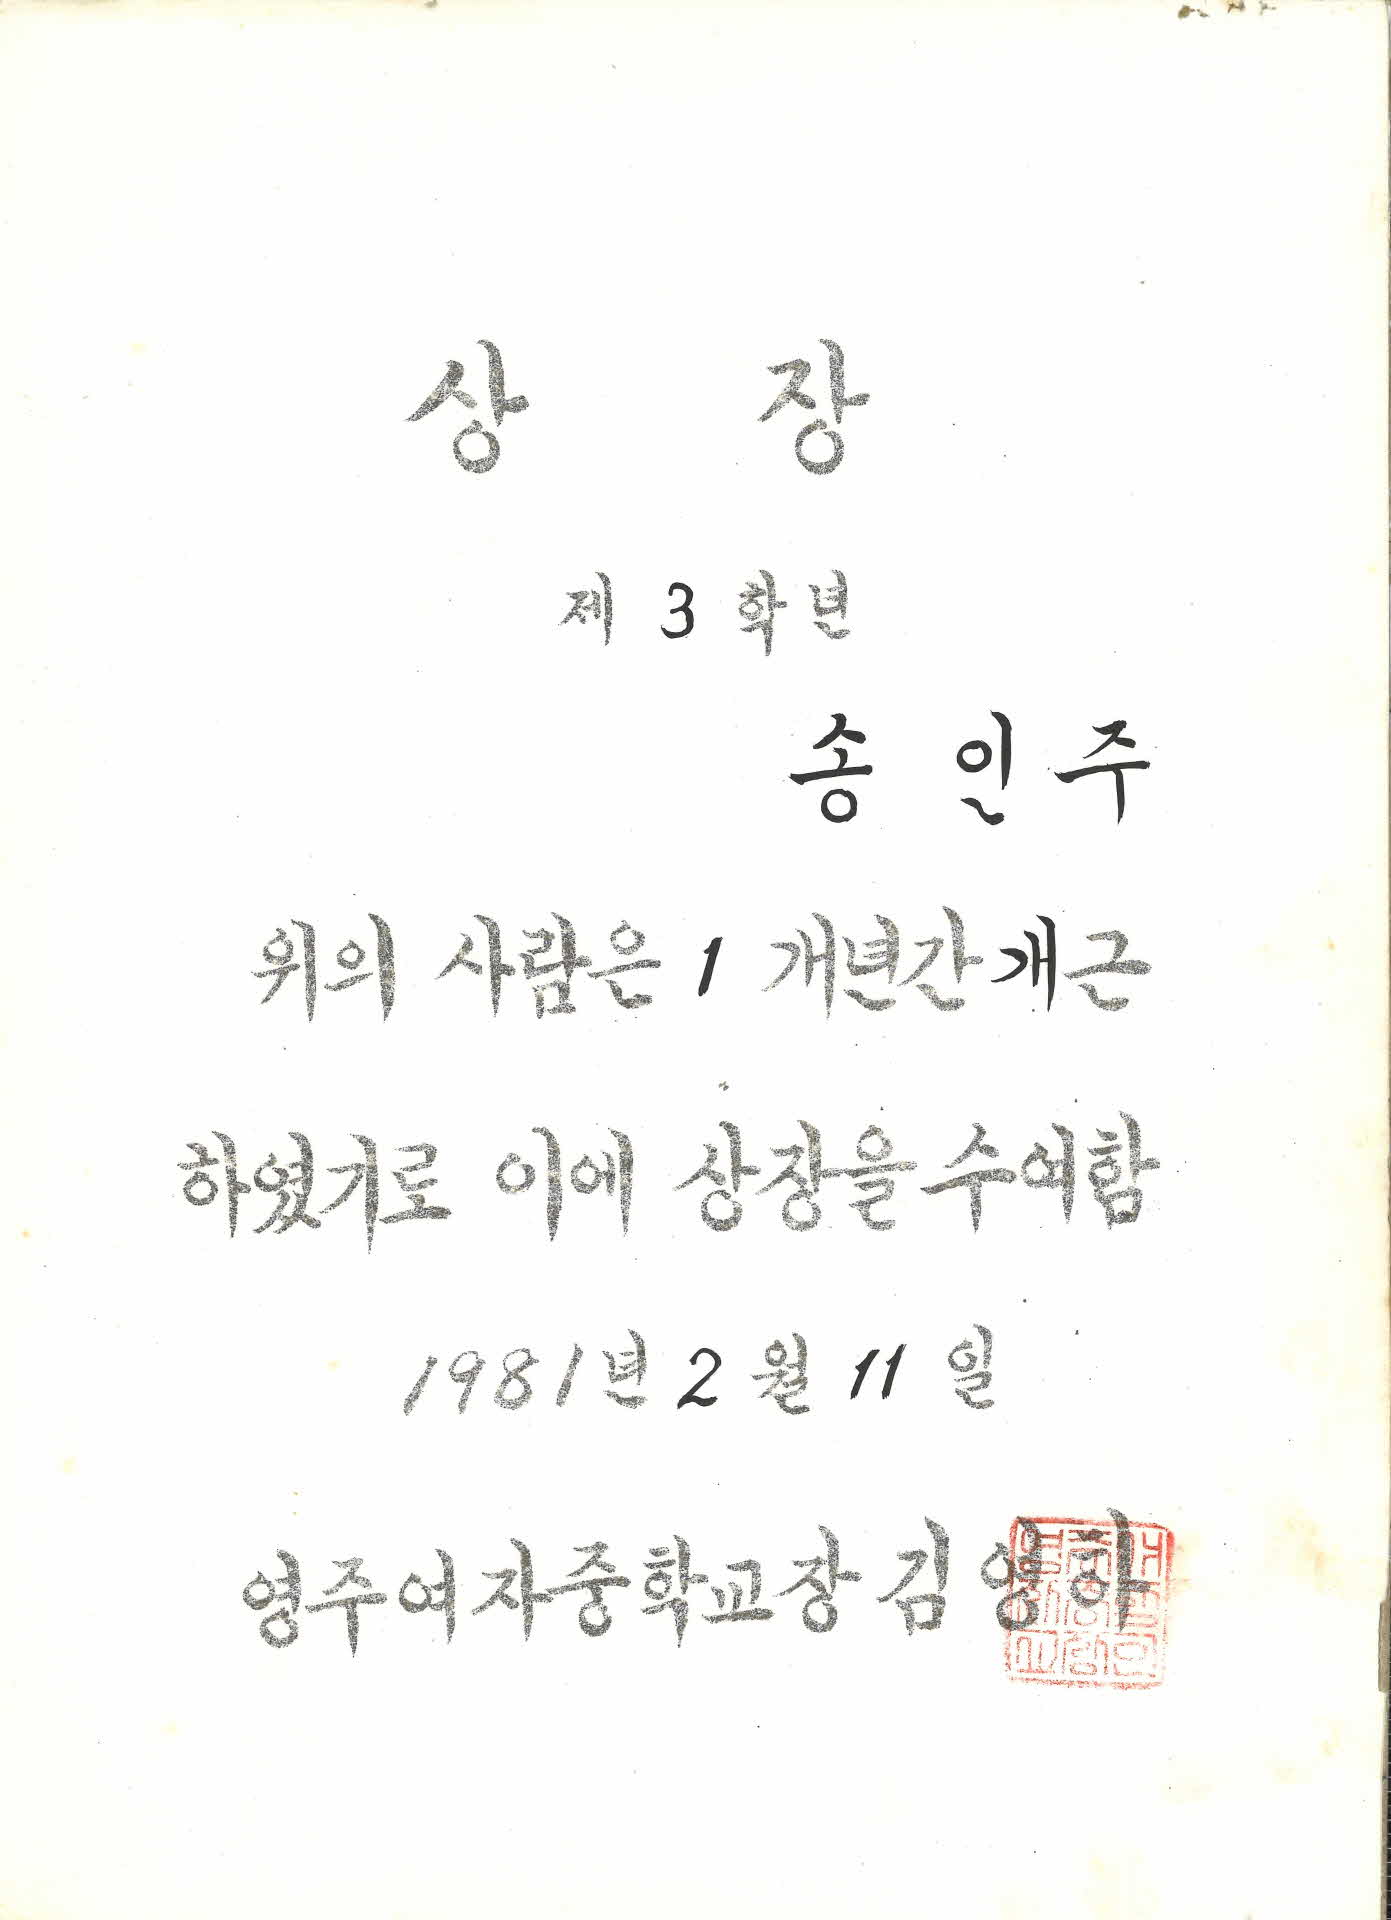 상 장
제 3 학년
송 인 주
위의 사람은 1 개년간 개근
하였기로 이에 상장을 수여함
1981년 2 월 11 일
영주여자중학교장 김 양 하